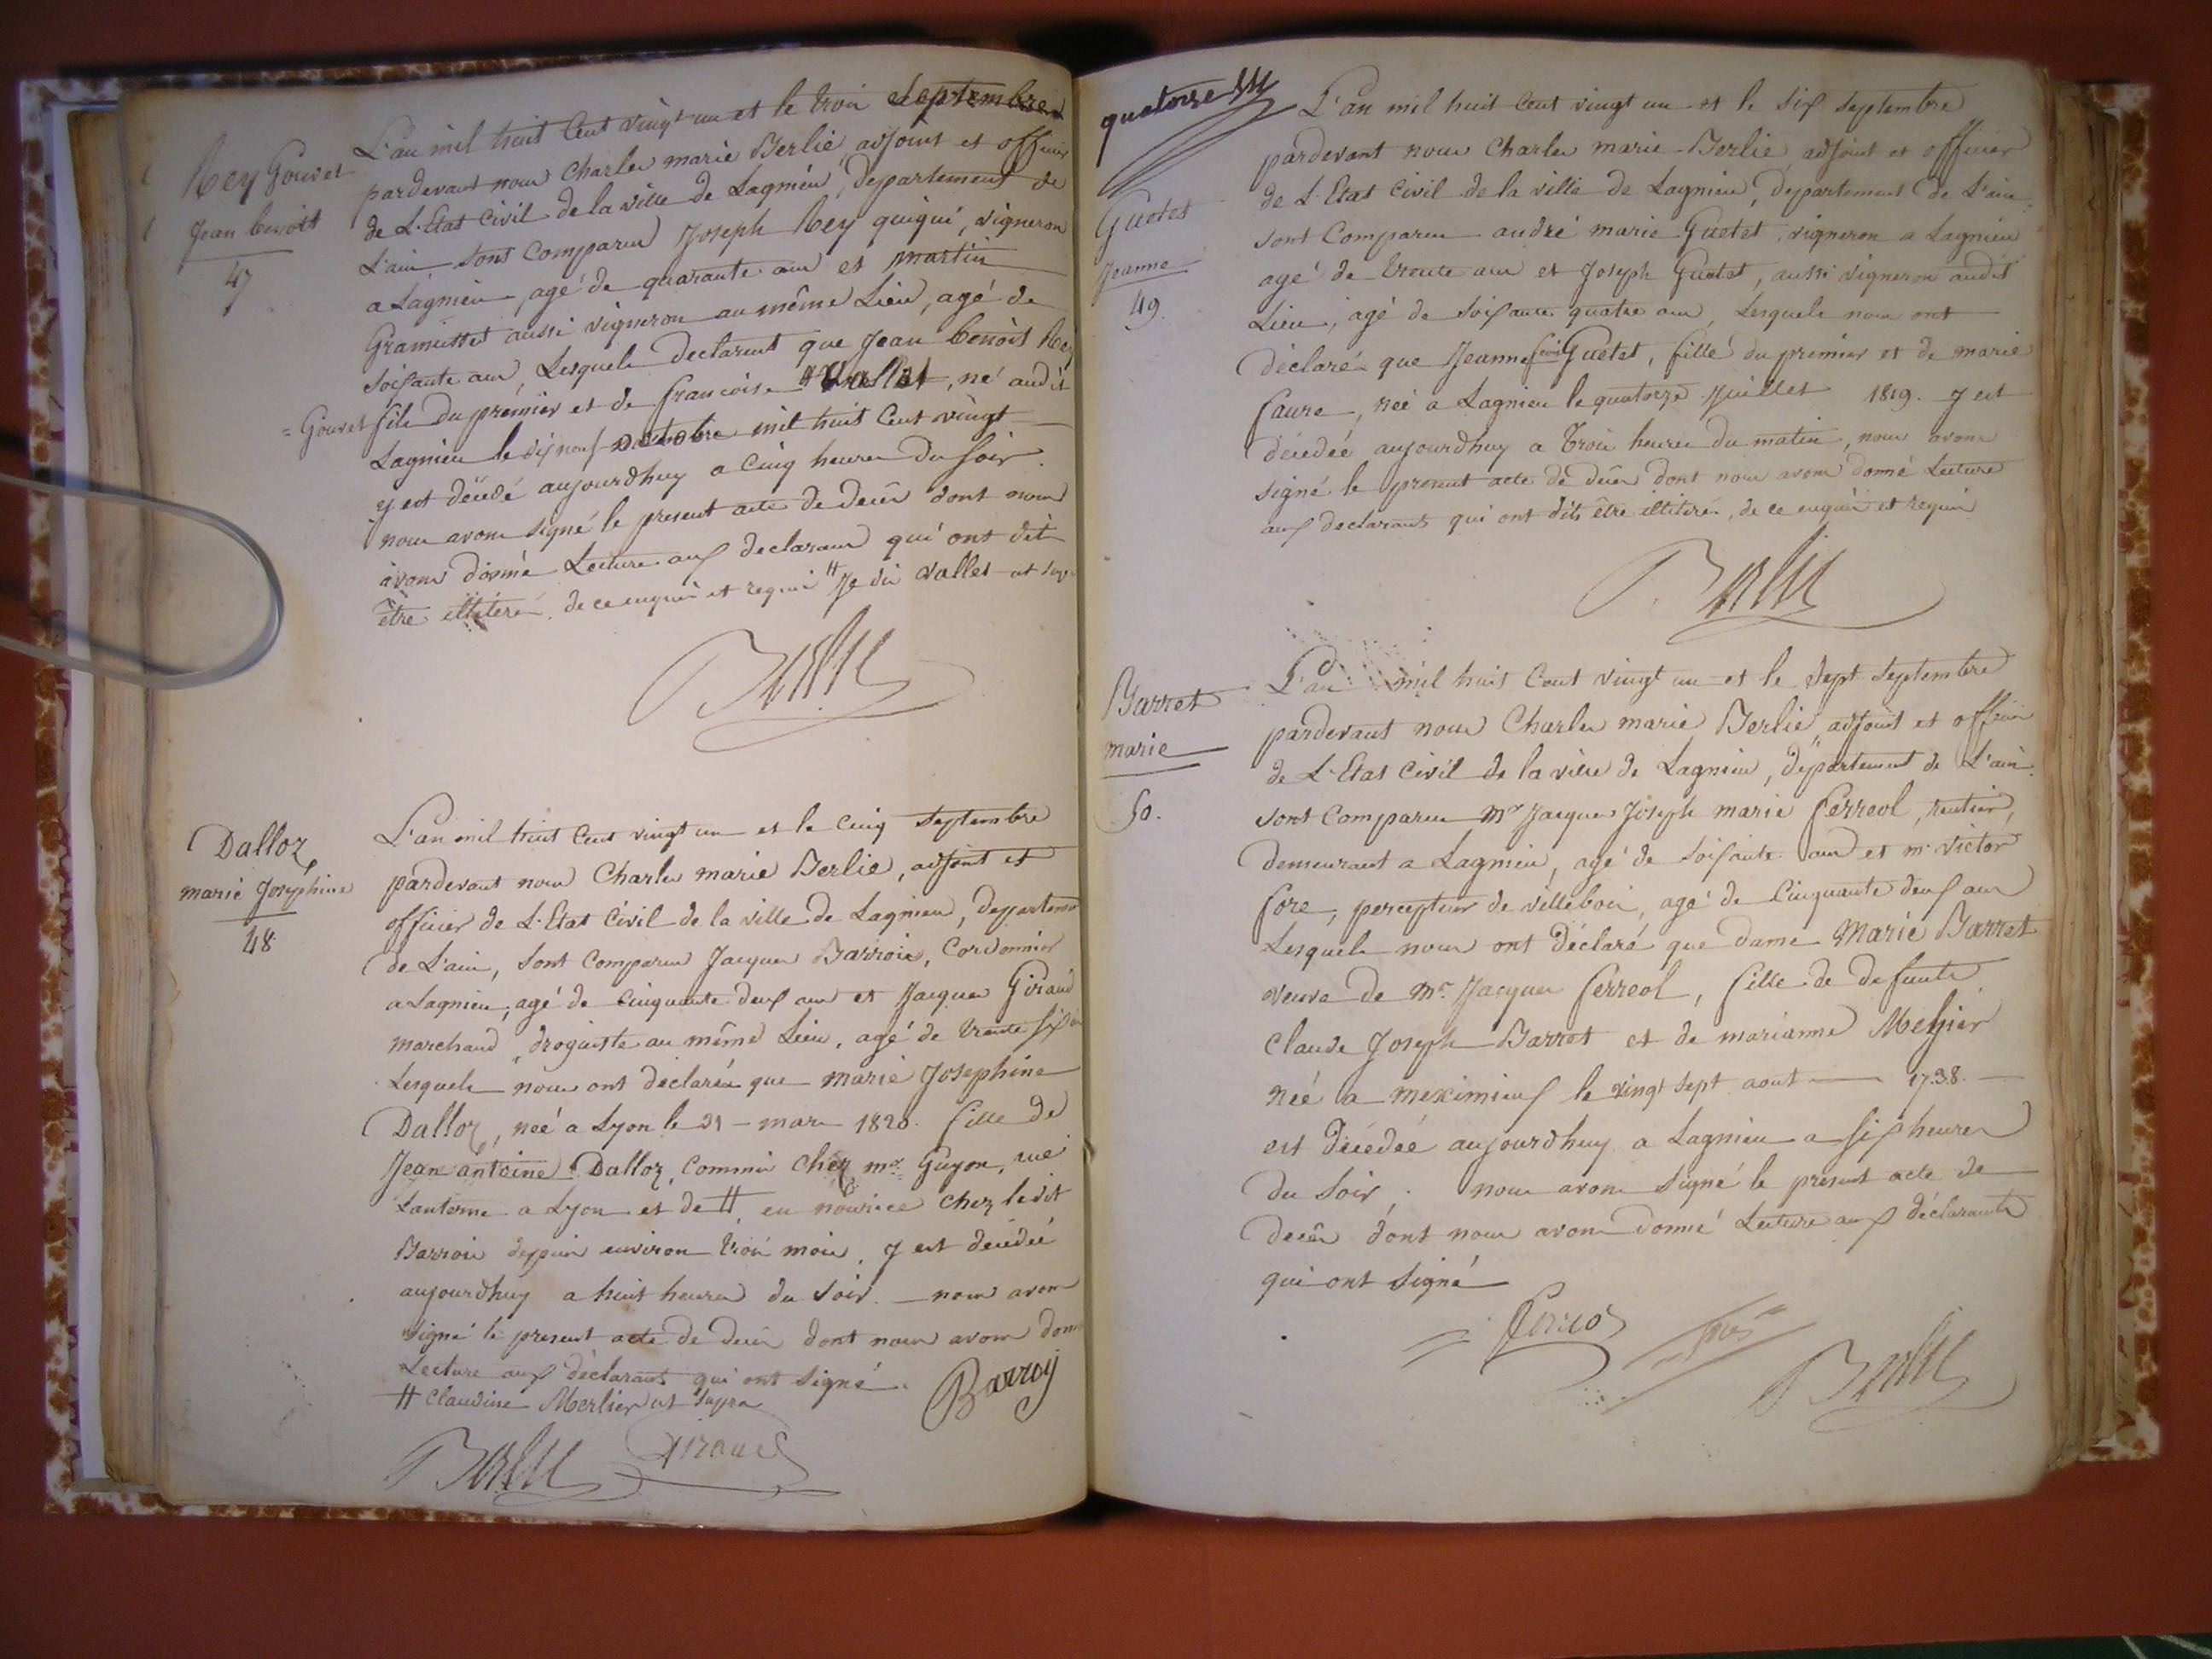 Rey Gouvet
Jean benoit
47
L'an mil huit Cent vingt un et le trois Septembre
pardevant nous Charles marie Berlié, adjoint et officier
de L'Etat Civil de la ville de Lagnieu, Departement de
L'ain, sont Comparus Joseph Rey quiqui, vigneron
a Lagnieu, agé de quarante ans et martin
Gramusset aussi vigneron au même Lieu, agé de
soixante ans, Lesquels declarent que Jean benoit Rey
= Gouvet fils du premier et de francoise # Vallet, né audit
Lagnieu le dix neuf octobre mil huit Cent vingt
y est décédé aujourdhuy a Cinq heures du soir.
nous avons signé le present acte de deces dont nous
avons donné Lecture aux declarans qui ont dit
être illitérés. de ce enquis et requis # Je dis Vallet ut sup.
Berlié
Dalloz
marie Josephine
48
L'an mil huit Cent vingt un et le Cinq Septembre
pardevant nous Charles marie Berlié, adjoint et
officier de L'Etat Civil de la ville de Lagnieu, departement
de L'ain, sont Comparus Jacques Barrois, Cordonnier
a Lagnieu, agé de Cinquante deux ans et Jacques Giraud
marchand droguiste au même Lieu, agé de trente six
Lesquels nous ont déclarés que marie Josephine
Dalloz, neé a Lyon le 21 - mars 1820. fille de
Jean antoine Dalloz, Commis chez mr. Guyon, rue
Lanterne a Lyon et de #, en nourice chez ledit
Barrois depuis environ trois mois, y est décédée
aujourdhuy a huit heures du soir. nous avons
signé le present acte de deces dont nous avons donné
Lecture aux déclarants qui ont signé.
# Claudine Merlier ut supra
Barroy
Berlié
Giraud
quatorze
Guetet
Jeanne
49.
L'an mil huit Cent vingt un et le six Septembre
pardevant nous Charles marie Berlié adjoint et officier
de L'Etat Civil de la ville de Lagnieu, Departement de L'ain
sont Comparus andré marie Guetet vigneron a Lagnieu
agé de trente ans et Joseph Guetet, aussi vigneron audit
Lieu, agé de soixante quatre ans, Lesquels nous ont
déclaré que Jeanne Guetet, fille du premier et de marie
faure, neé a Lagnieu le quatorze juillet 1819. y est
décédée aujourdhuy a trois heures du matin, nous avons
signé le present acte de deces dont nous avons donné Lecture
aux declarants qui ont dits être illitérés, de ce enquis et requis
Berlié
Barret
marie
50.
L'an mil huit Cent vingt un et le sept septembre
pardevant nous Charles marie Berlié, adjoint et officier
de L'Etat Civil de la ville de Lagnieu, département de L'ain.
sont Comparus Mr Jacques Joseph marie ferreol, rentier,
demeurant a Lagnieu, agé de soixante ans et mr. victor
fore, percepteur de villebois, agé de Cinquante deux ans
Lesquels nous ont déclaré que dame Marie Barret
veuve de Mr. Jacques ferreol, fille de defunts
Claude Joseph Barret et de marianne Megier
neé a meximieux le vingt sept aout 1738.
est décédée aujourdhuy a Lagnieu a six heures
du soir. nous avons signé le present acte de
deces dont nous avons donné Lecture aux déclarants
qui ont signé
Berlié